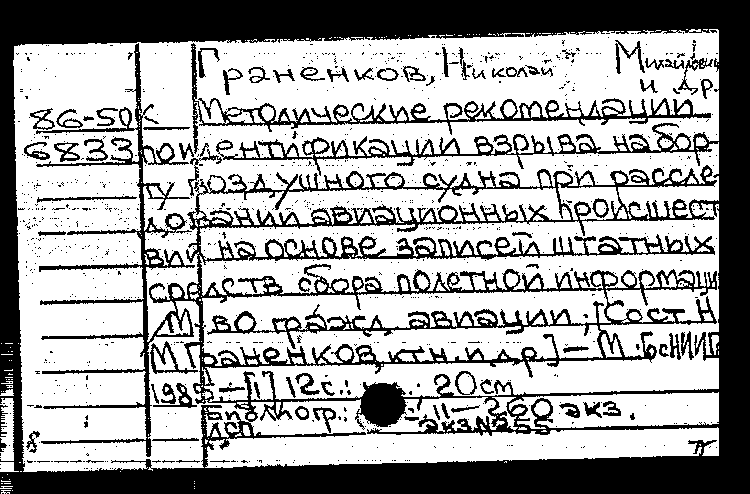 Граненков, Николай Михайлович
и др.
86-50к Методические рекомендации
6833 по идентификации взрыва на бор-
ту воздушного судна при рассле-
довании авиационных происшест
вий на основе записей штатных
средств сбора полетной информаци
М-во гражд. авиации; [Сост. Н.
М. Граненков, к.т.н. и др.] — М.: ГосНИИГ
1985. — [1] 12 с.: 20 см
Библиогр.: 11 — 260 экз.
ДСП. Экз. N 255.